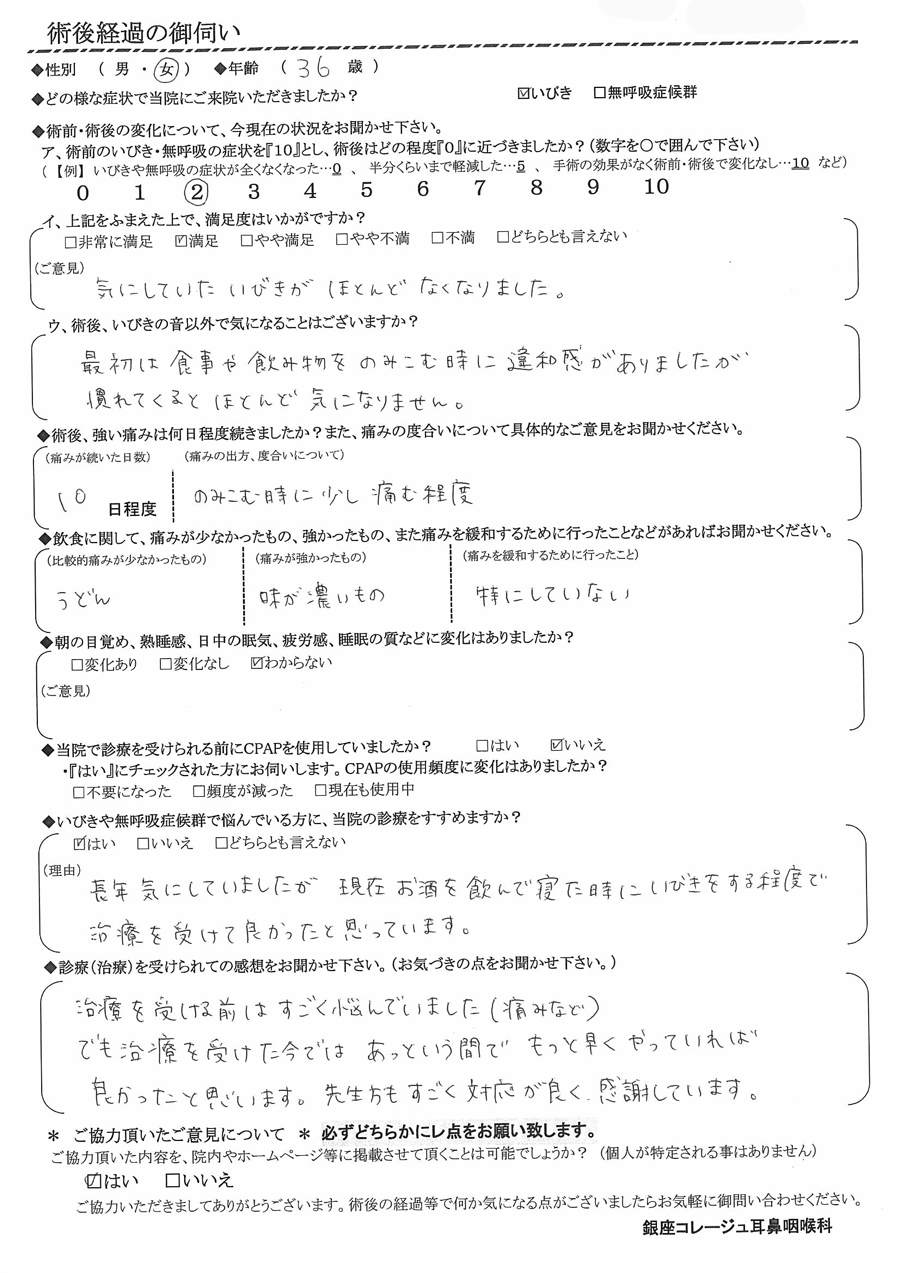 術後経過の御伺い
◆性別 ( 男 ・ 女 ) ◆年齢 ( 36 歳 )
◆どの様な症状で当院にご来院いただきましたか? ☑いびき □無呼吸症候群
◆術前・術後の変化について、今現在の状況をお聞かせ下さい。
ア、術前のいびき・無呼吸の症状を『10』とし、術後はどの程度『0』に近づきましたか?(数字を○で囲んで下さい)
(【例】いびきや無呼吸の症状が全くなくなった…0 、 半分くらいまで軽減した…5 、 手術の効果がなく術前・術後で変化なし…10 など)
0 1 2 3 4 5 6 7 8 9 10
イ、上記をふまえた上で、満足度はいかがですか?
□非常に満足 ☑満足 □やや満足 □やや不満 □不満 □どちらとも言えない
(ご意見)
気にしていた いびきが ほとんど なくなりました。
ウ、術後、いびきの音以外で気になることはございますか?
最初は 食事や 飲み物を のみこむ時に 違和感がありましたが
慣れてくると ほとんど 気になりません。
◆術後、強い痛みは何日程度続きましたか?また、痛みの度合いについて具体的なご意見をお聞かせください。
(痛みが続いた日数) (痛みの出方、度合いについて)
10 日程度 のみこむ時に 少し 痛む程度
◆飲食に関して、痛みが少なかったもの、強かったもの、また痛みを緩和するために行ったことなどがあればお聞かせください。
(比較的痛みが少なかったもの) (痛みが強かったもの) (痛みを緩和するために行ったこと)
うどん 味が濃いもの 特にしていない
◆朝の目覚め、熟睡感、日中の眠気、疲労感、睡眠の質などに変化はありましたか?
□変化あり □変化なし ☑わからない
(ご意見)
◆当院で診療を受けられる前にCPAPを使用していましたか? □はい ☑いいえ
・『はい』にチェックされた方にお伺いします。CPAPの使用頻度に変化はありましたか?
□不要になった □頻度が減った □現在も使用中
◆いびきや無呼吸症候群で悩んでいる方に、当院の診療をすすめますか?
☑はい □いいえ □どちらとも言えない
(理由)
長年 気にしていましたが 現在 お酒を飲んで寝た時にいびきをする程度で
治療を受けて良かったと思っています。
◆診療(治療)を受けられての感想をお聞かせ下さい。(お気づきの点をお聞かせ下さい。)
治療を受ける前は すごく悩んでいました(痛みなど)
でも治療を受けた今では あっという間で もっと早くやっていれば
良かったと思います。先生方もすごく対応が良く、感謝しています。
＊ ご協力頂いたご意見について ＊ 必ずどちらかにレ点をお願い致します。
ご協力頂いた内容を、院内やホームページ等に掲載させて頂くことは可能でしょうか? (個人が特定される事はありません)
☑はい □いいえ
ご協力いただきましてありがとうございます。術後の経過等で何か気になる点がございましたらお気軽に御問い合わせください。
銀座コレージュ耳鼻咽喉科